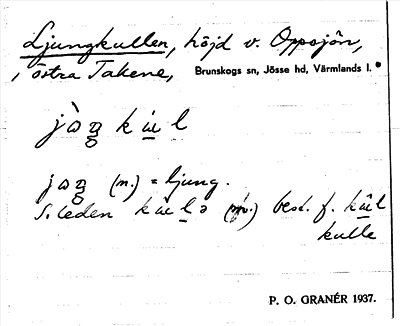 Ljungkullen, höjd v. Oppsjön,
i östra Takene, Brunskogs sn, Jösse hd, Värmlands l.
jòŋ kul
joŋ (m.) = ljung.
S. leden best. f.
kulle
P. O. GRANÉR 1937.